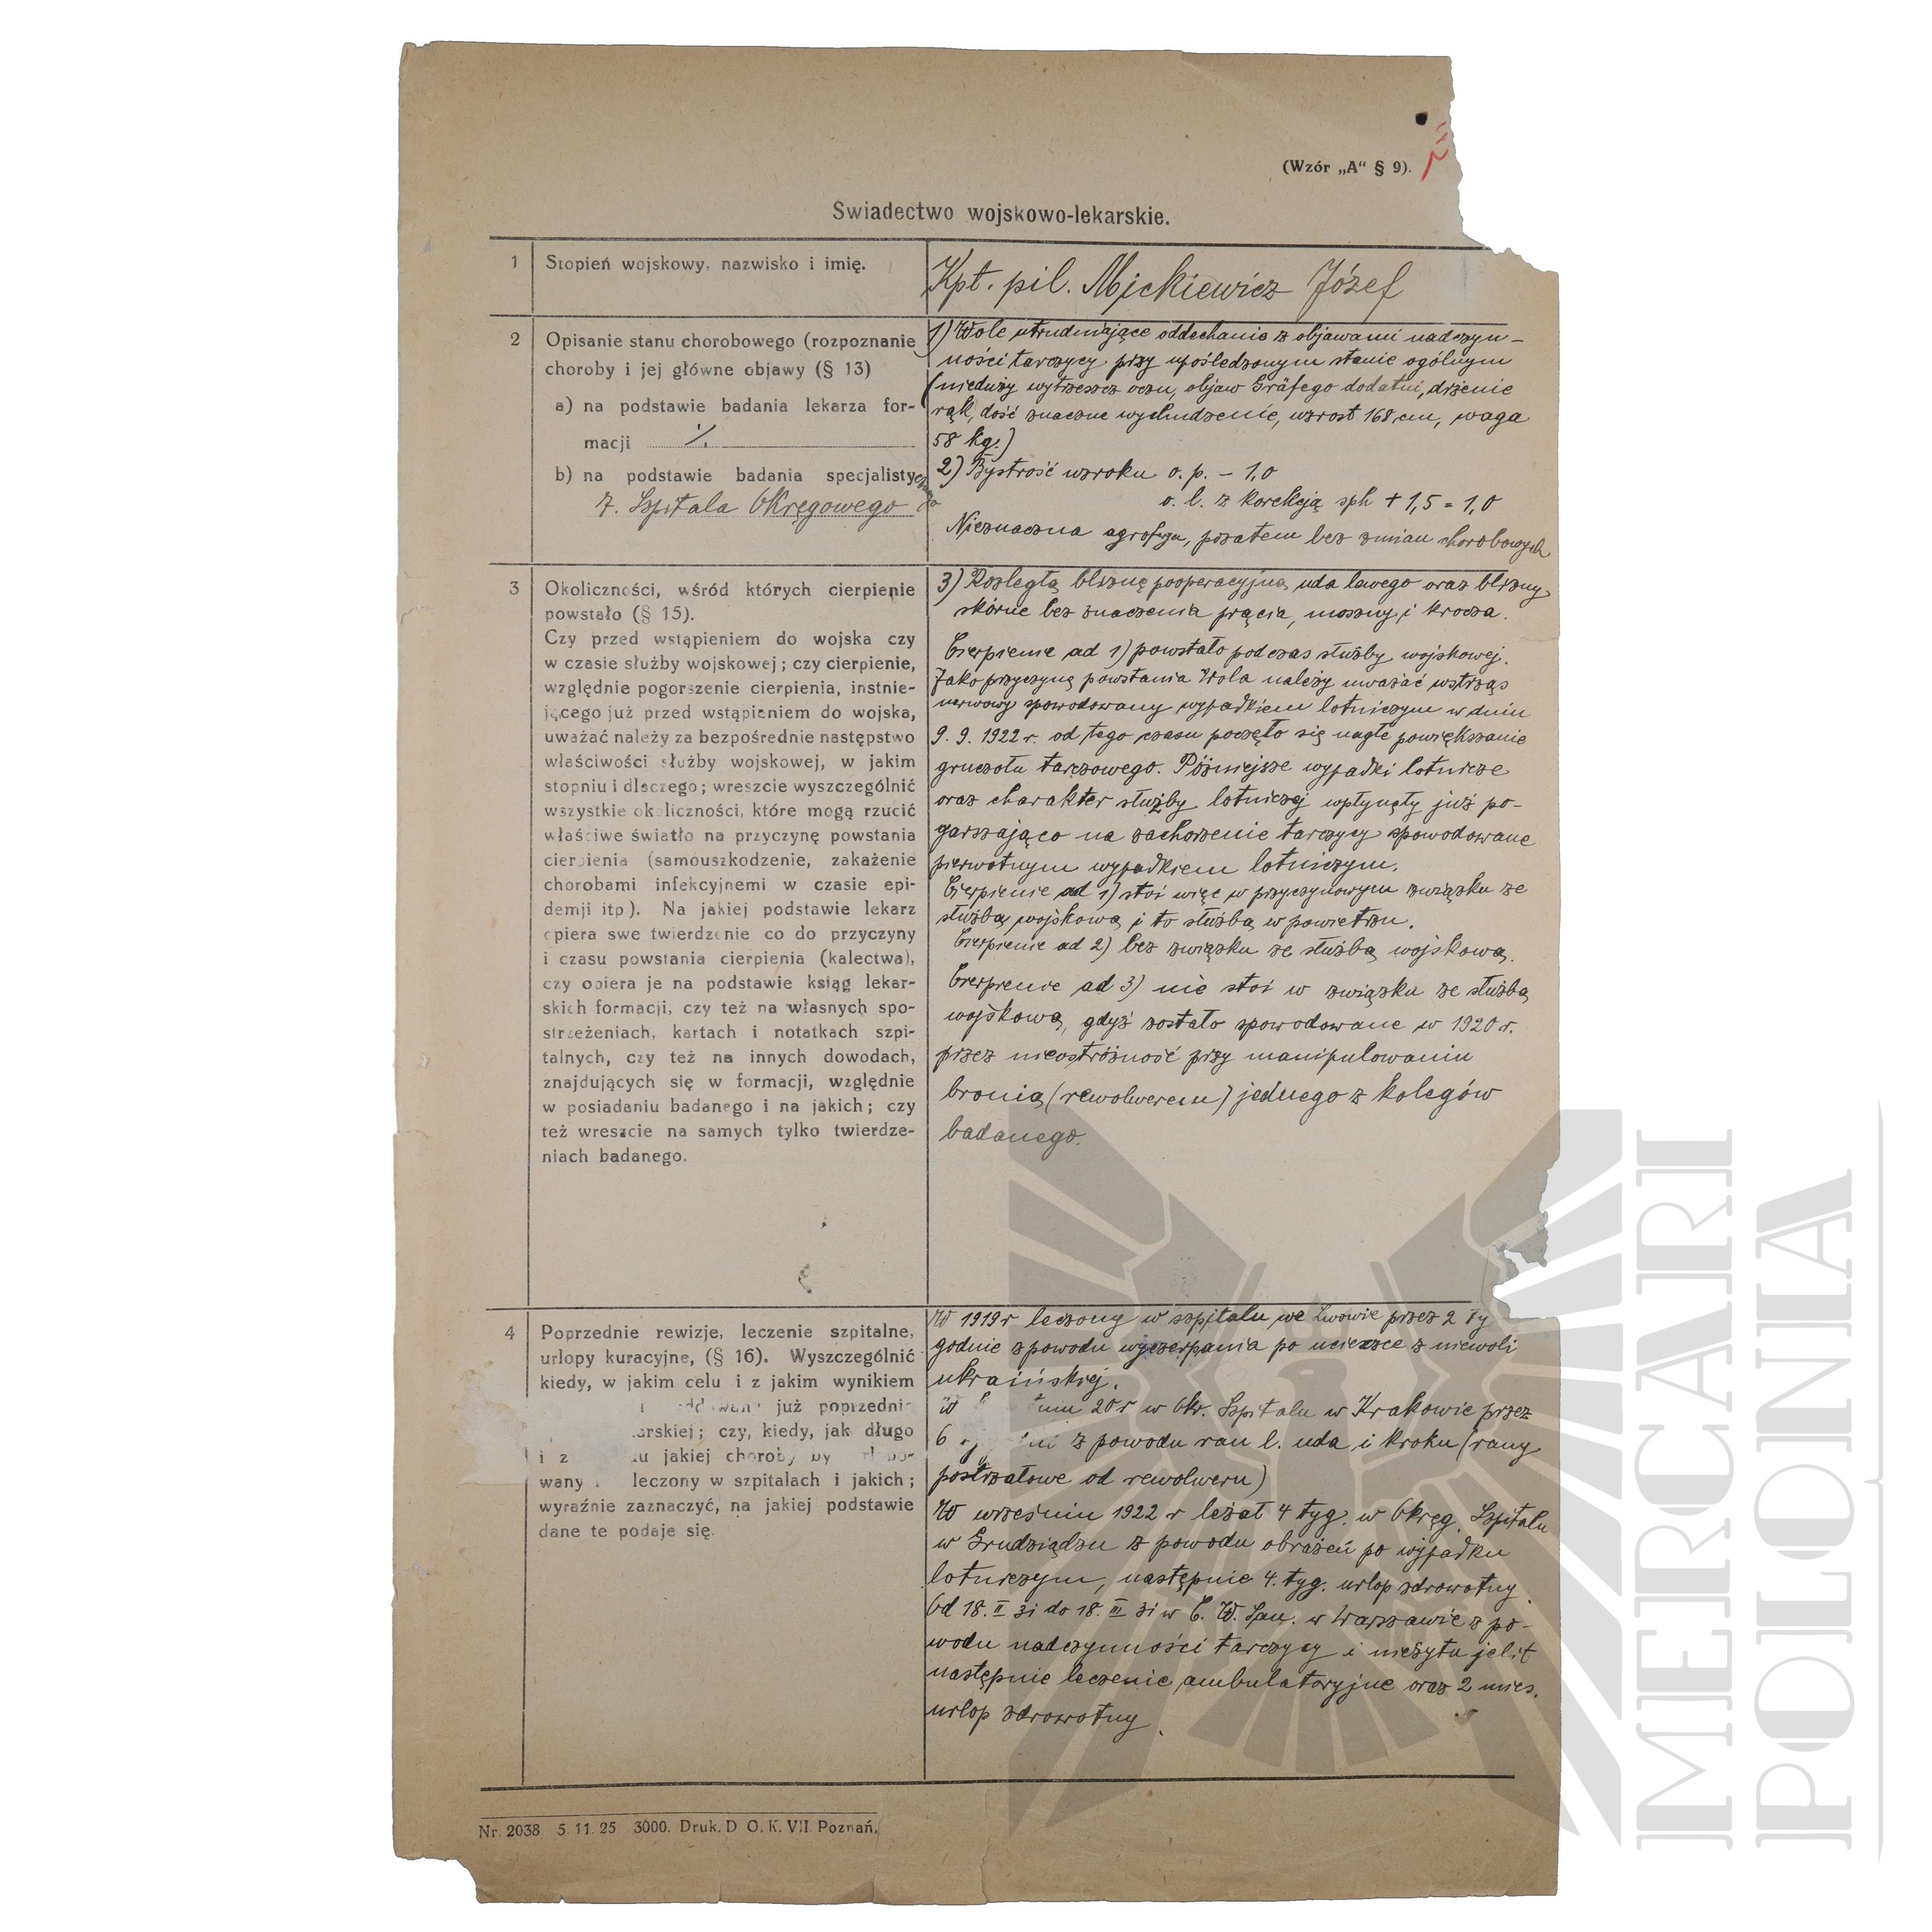 (Wzór „A“ § 9).
Swiadectwo wojskowo-lekarskie.
1
Stopień wojskowy, nazwisko i imię.
Kpt. pil. Mickiewicz Józef
2
Opisanie stanu chorobowego (rozpoznanie
choroby i jej główne objawy (§ 13)
a) na podstawie badania lekarza for-
macji ·/.
b) na podstawie badania specjalistycznego
7. Szpitala Okręgowego
1) Wole utrudniające oddechanie z objawami nadczyn-
ności tarczycy przy upośledzonym stanie ogólnym
(nieduży wytrzeszcz oczu, objaw Gräfego dodatni, drżenie
rąk, dość znaczne wychudzenie, wzrost 168 cm, waga
58 kg.)
2) Bystrość wzroku o. p. – 1,0
o. l. z korekcją sph + 1,5 = 1,0
Nieznaczna, pozatem bez zmian chorobowych
3
Okoliczności, wśród których cierpienie
powstało (§ 15).
Czy przed wstąpieniem do wojska czy
w czasie służby wojskowej; czy cierpienie,
względnie pogorszenie cierpienia, instnie-
jącego już przed wstąpieniem do wojska,
uważać należy za bezpośrednie następstwo
właściwości służby wojskowej, w jakim
stopniu i dlaczego; wreszcie wyszczególnić
wszystkie okoliczności, które mogą rzucić
właściwe światło na przyczynę powstania
cierpienia (samouszkodzenie, zakażenie
chorobami infekcyjnemi w czasie epi-
demji itp). Na jakiej podstawie lekarz
opiera swe twierdzenie co do przyczyny
i czasu powstania cierpienia (kalectwa),
czy opiera je na podstawie ksiąg lekar-
skich formacji, czy też na własnych spo-
strzeżeniach, kartach i notatkach szpi-
talnych, czy też na innych dowodach,
znajdujących się w formacji, względnie
w posiadaniu badanego i na jakich; czy
też wreszcie na samych tylko twierdze-
niach badanego.
3) Rozległą bliznę pooperacyjną uda lewego oraz blizny
skórne bez znaczenia prącia, moszny i krocza.
Cierpienie ad 1) powstało podczas służby wojskowej.
Jako przyczynę powstania Wola należy uważać wstrząs
nerwowy spowodowany wypadkiem lotniczym w dniu
9. 9. 1922 r. od tego czasu poczęło się nagłe powiększanie
gruczołu tarczowego. Późniejsze wypadki lotnicze
oraz charakter służby lotniczej wpłynęły już po-
garszająco na zachorzenie tarczycy spowodowane
pierwotnym wypadkiem lotniczym.
Cierpienie ad 1) stoi więc w przyczynowym związku ze
służbą wojskową i to służbą w powietrzu.
Cierpienie ad 2) bez związku ze służbą wojskową.
Cierpienie ad 3) nie stoi w związku ze służbą
wojskową, gdyż zostało spowodowane w 1920 r.
przez nieostróżność przy manipulowaniu
bronią (rewolwerem) jednego z kolegów
badanego.
4
Poprzednie rewizje, leczenie szpitalne,
urlopy kuracyjne, (§ 16). Wyszczególnić
kiedy, w jakim celu i z jakim wynikiem
już poprzednio
arskiej; czy, kiedy, jak długo
i z jakiej choroby
wany leczony w szpitalach i jakich;
wyraźnie zaznaczyć, na jakiej podstawie
dane te podaje się.
W 1919 r leczony w szpitalu we Lwowie przez 2 ty
godnie z powodu wyczerpania po ucieczce z niewoli
ukraińskiej.
W 20 r w Okr. Szpitalu w Krakowie przez
6 z powodu ran l. uda i kroku (rany
postrzałowe od rewolweru)
W wrześniu 1922 r leżał 4 tyg. w Okręg. Szpitalu
w Grudziądzu z powodu obrażeń po wypadku
lotniczym, następnie 4. tyg. urlop zdrowotny.
Od 18. II 31 do 18. III 31 w C. W. San. w Warszawie z po-
wodu nadczynności tarczycy i nieżytu jelit
następnie leczenie ambulatoryjne oraz 2 mies.
urlop zdrowotny.
Nr. 2038. 5. 11. 25 3000. Druk. D. O. K. VII. Poznań.
MERCARI
POLONIA